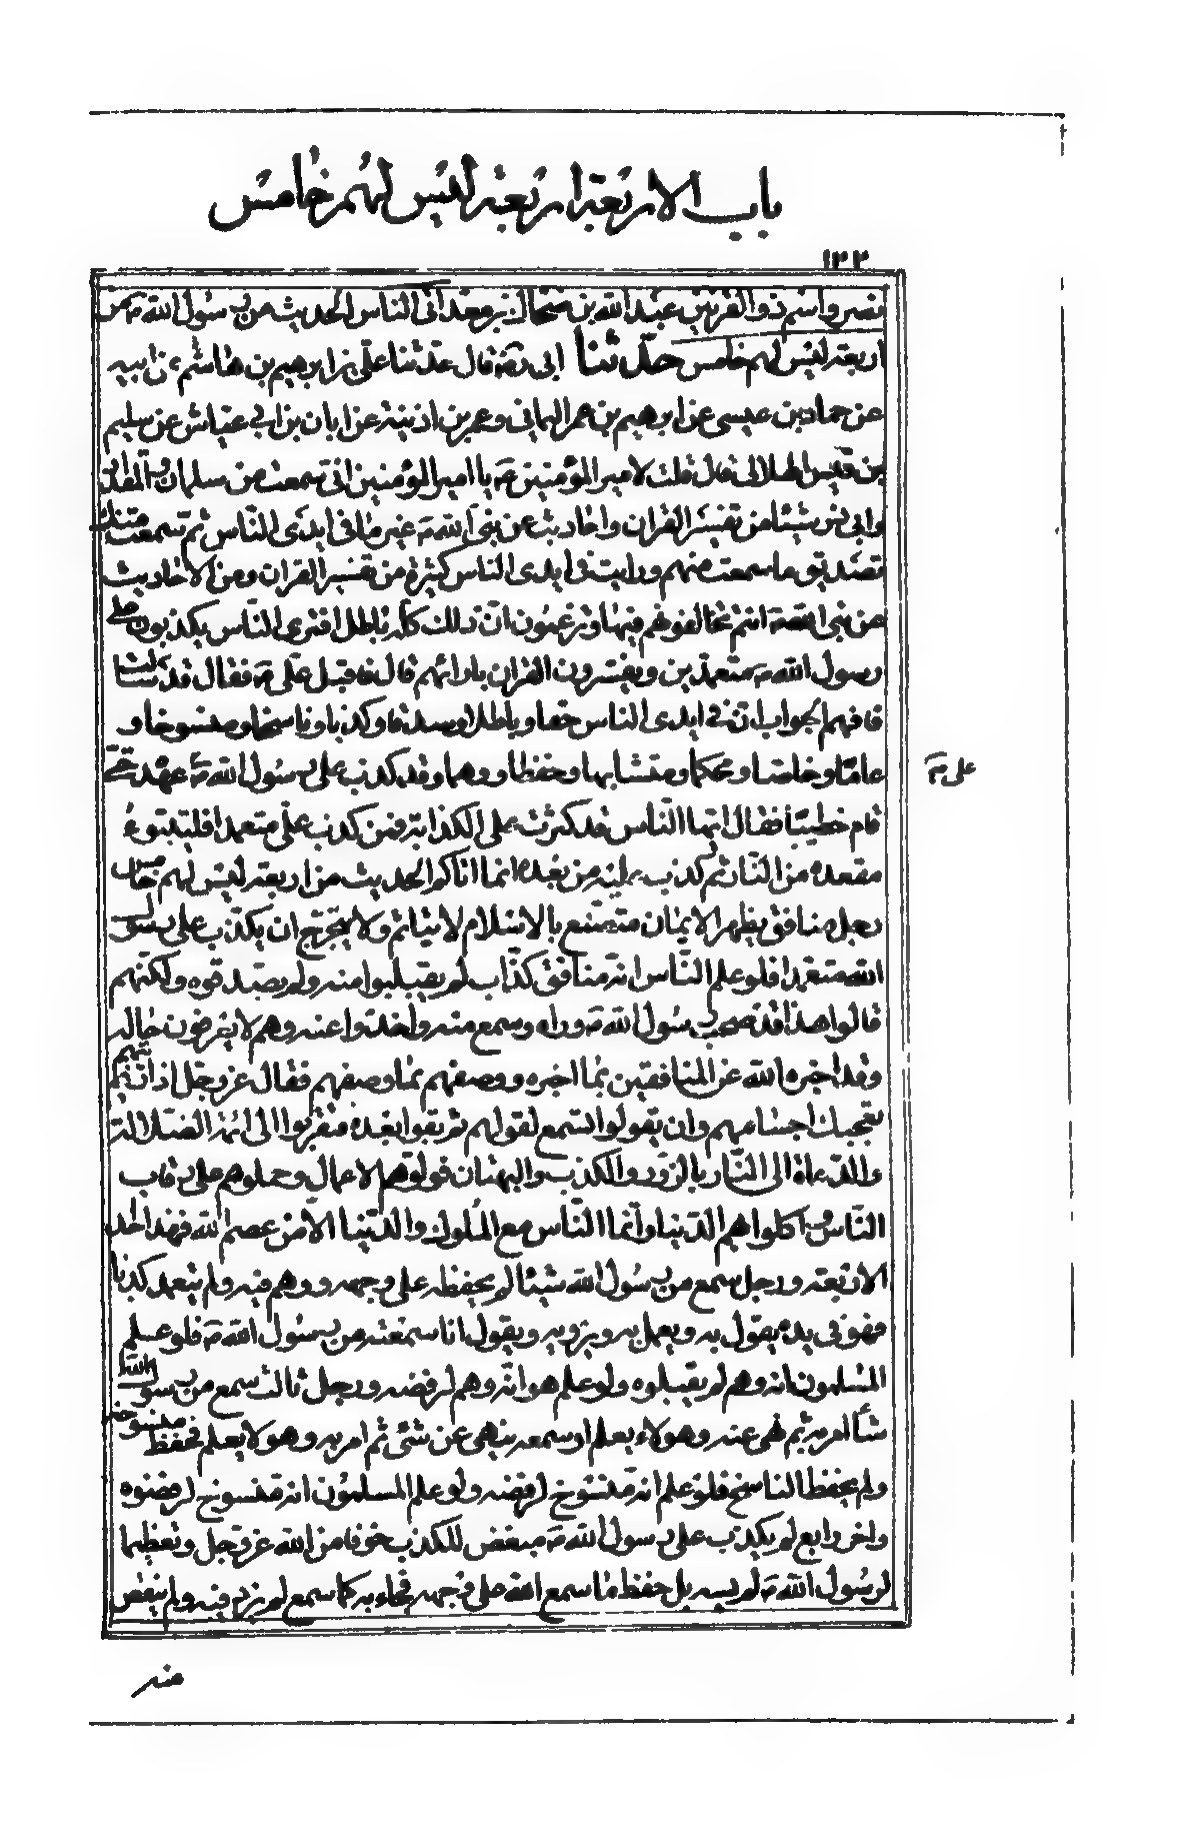 باب الاربعة اربعة ليس لهم خامس
١٢٢
نصر واسم ذو القرنين عبد الله بن ضحاك بن معد اتى الناس الحديث من رسول الله ص من
اربعة ليس لهم خامس حدثنا ابى ره قال حدثنا على بن ابرهيم بن هاشم عن ابيه
عن حماد بن عيسى عن ابرهيم بن عمر اليمانى وعمر بن اذينة عن ابان بن ابي عياش عن سليم
بن قيس الهلالى قال قلت لامير المؤمنين ع يا امير المؤمنين انى سمعت من سلمان والمقداد
وابي ذر شيئا من تفسير القران واحاديث عن نبى الله ص غير ما فى ايدى الناس ثم سمعت منك
تصديق ما سمعت منهم ورايت فى ايدى الناس كثيرة من تفسير القران ومن الاحاديث
عن نبى الله ص انتم تخالفوهم فيها وتزعمون ان ذلك كله باطل افترى الناس يكذبون على
رسول الله ص متعمدين ويفسرون القران بارائهم قال فاقبل على ع فقال قد سالت
فافهم الجواب ان فى ايدى الناس حقا وباطلا وصدقا وكذبا وناسخا ومنسوخا و
عاما وخاصا ومحكما ومتشابها وحفظا ووهما وقد كذب على رسول الله ص على عهده حتى
قام خطيبا فقال ايها الناس قد كثرت على الكذابة فمن كذب على متعمدا فليتبوء
مقعده من النار ثم كذب عليه من بعده انما اتاكم الحديث من اربعة ليس لهم خامس
رجل منافق يظهر الايمان متصنع بالاسلام لا يتاثم ولا يتحرج ان يكذب على رسول
الله متعمدا فلو علم الناس انه منافق كذاب لم يقبلوا منه ولم يصدقوه ولكنهم
قالوا هذا قد صحب رسول الله ص وراه وسمع منه واخذوا عنه وهم لا يعرفون حاله
وقد اخبره الله عن المنافقين بما اخبره ووصفهم بما وصفهم فقال عز وجل اذا رايتهم
تعجبك اجسامهم وان يقولوا تسمع لقولهم ثم بقوا بعده فتقربوا الى ائمة الضلالة
والدعاة الى النار بالزور والكذب والبهتان فولوهم الاعمال وحملوهم على رقاب
الناس واكلوا بهم الدنيا وانما الناس مع الملوك والدنيا الا من عصم الله فهذا احد
الاربعة ورجل سمع من رسول الله شيئا لم يحفظه على وجهه ووهم فيه ولم يتعمد كذبا
فهو فى يده يقول به ويعمل به ويرويه ويقول انا سمعته من رسول الله ص فلو علم
المسلمون انه وهم لم يقبلوه ولو علم هو انه وهم لرفضه ورجل ثالث سمع من رسول الله
شيئا امر به ثم نهى عنه وهو لا يعلم او سمعه ينهى عن شئ ثم امر به وهو لا يعلم فحفظ منسوخه
ولم يحفظ الناسخ فلو علم انه منسوخ لرفضه ولو علم المسلمون انه منسوخ لرفضوه
واخر رابع لم يكذب على رسول الله ص مبغض للكذب خوفا من الله عز وجل وتعظيما
لرسول الله ص لم يسه بل حفظ ما سمع الله على وجهه فجاء به كما سمع لم يزد فيه ولم ينقص
منه